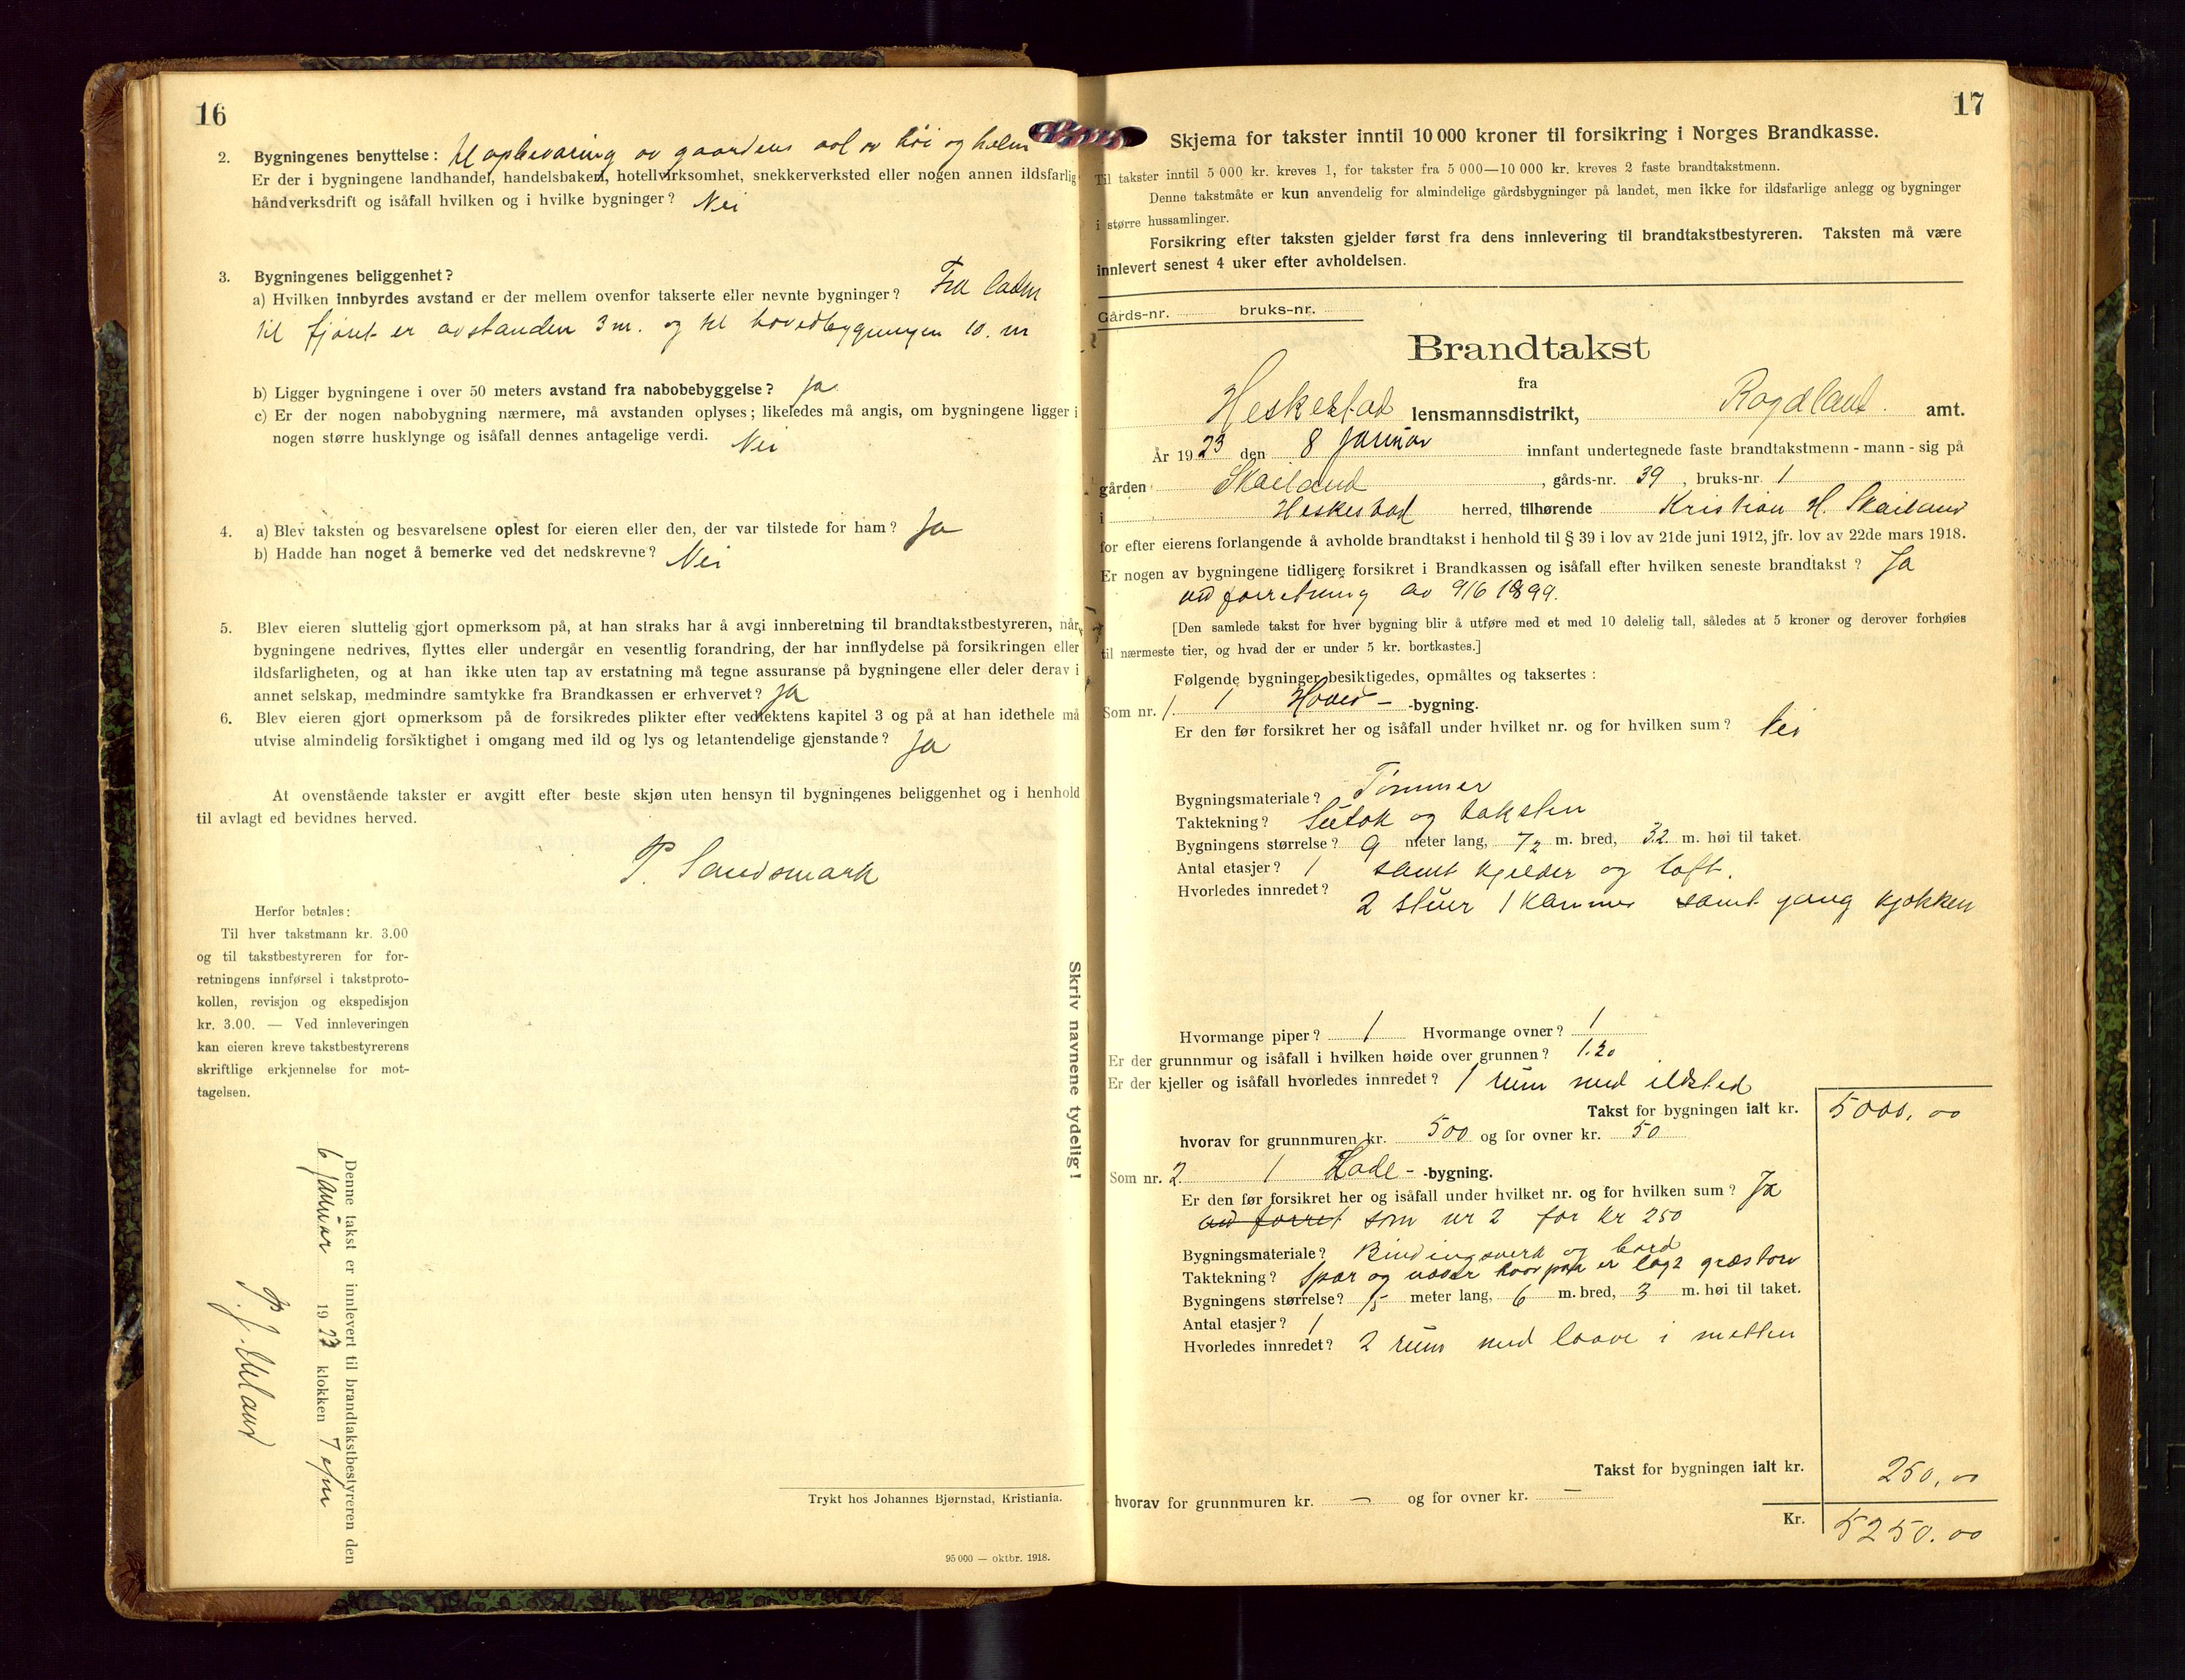 16
2. Bygningenes benyttelse: til opbevaring av gaardens avl av høi og halm
Er der i bygningene landhandel, handelsbakeri, hotellvirksomhet, snekkerverksted eller nogen annen ildsfarlig
håndverksdrift og isåfall hvilken og i hvilke bygninger? Nei
3. Bygningenes beliggenhet?
a) Hvilken innbyrdes avstand er der mellem ovenfor takserte eller nevnte bygninger? Fra laden
til fjøset er avstanden 3 m. og til hovedbygningen 10. m
b) Ligger bygningene i over 50 meters avstand fra nabobebyggelse? Ja
c) Er der nogen nabobygning nærmere, må avstanden oplyses; likeledes må angis, om bygningene ligger i
nogen større husklynge og isåfall dennes antagelige verdi. Nei
4. a) Blev taksten og besvarelsene oplest for eieren eller den, der var tilstede for ham? Ja
b) Hadde han noget å bemerke ved det nedskrevne? Nei
5. Blev eieren sluttelig gjort opmerksom på, at han straks har å avgi innberetning til brandtakstbestyreren, når
bygningene nedrives, flyttes eller undergår en vesentlig forandring, der har innflydelse på forsikringen eller
ildsfarligheten, og at han ikke uten tap av erstatning må tegne assuranse på bygningene eller deler derav i
annet selskap, medmindre samtykke fra Brandkassen er erhvervet? Ja
6. Blev eieren gjort opmerksom på de forsikredes plikter efter vedtektens kapitel 3 og på at han idethele må
utvise almindelig forsiktighet i omgang med ild og lys og letantendelige gjenstande? Ja
At ovenstående takster er avgitt efter beste skjøn uten hensyn til bygningenes beliggenhet og i henhold
til avlagt ed bevidnes herved.
P. Sandsmark
Herfor betales:
Til hver takstmann kr. 3.00
og til takstbestyreren for for-
retningens innførsel i takstproto-
kollen, revisjon og ekspedisjon
kr. 3.00. — Ved innleveringen
kan eieren kreve takstbestyrerens
skriftlige erkjennelse for mot-
tagelsen.
Denne takst er innlevert til brandtakstbestyreren den
6 januar 1923 klokken 7 efm
P. J. Uland
Skriv navnene tydelig!
Trykt hos Johannes Bjørnstad, Kristiania.
95 000 — oktbr. 1918.
17
Skjema for takster inntil 10 000 kroner til forsikring i Norges Brandkasse.
Til takster inntil 5 000 kr. kreves 1, for takster fra 5 000—10 000 kr. kreves 2 faste brandtakstmenn.
Denne takstmåte er kun anvendelig for almindelige gårdsbygninger på landet, men ikke for ildsfarlige anlegg og bygninger
i større hussamlinger.
Forsikring efter taksten gjelder først fra dens innlevering til brandtakstbestyreren. Taksten må være
innlevert senest 4 uker efter avholdelsen.
Gårds-nr. bruks-nr.
Brandtakst
fra
Heskestad lensmannsdistrikt, Rogaland. amt.
År 1923 den 8 januar innfant undertegnede faste brandtakstmenn - mann - sig på
gården Skailand, gårds-nr. 39, bruks-nr. 1
i Heskestad herred, tilhørende Kristian H. Skailand
for efter eierens forlangende å avholde brandtakst i henhold til § 39 i lov av 21de juni 1912, jfr. lov av 22de mars 1918.
Er nogen av bygningene tidligere forsikret i Brandkassen og isåfall efter hvilken seneste brandtakst? Ja
ved forretning av 9/6 1899.
[Den samlede takst for hver bygning blir å utføre med et med 10 delelig tall, således at 5 kroner og derover forhøies
til nærmeste tier, og hvad der er under 5 kr. bortkastes.]
Følgende bygninger besiktigedes, opmåltes og taksertes:
Som nr. 1. 1 Hoved- -bygning.
Er den før forsikret her og isåfall under hvilket nr. og for hvilken sum? Nei
Bygningsmateriale? Tømmer
Taktekning? Sutak og taksten
Bygningens størrelse? 9 meter lang, 7,2 m. bred, 3.2 m. høi til taket.
Antal etasjer? 1 samt kjelder og loft.
Hvorledes innredet?
2 stuer 1 kammer samt gang kjøkken
Hvormange piper? 1 Hvormange ovner? 1
Er der grunnmur og isåfall i hvilken høide over grunnen? 1.20
Er der kjeller og isåfall hvorledes innredet? 1 rum med ildsted
Takst for bygningen ialt kr. 5000,00
hvorav for grunnmuren kr. 500 og for ovner kr. 50
Som nr. 2. 1 Lade- -bygning.
Er den før forsikret her og isåfall under hvilket nr. og for hvilken sum? Ja
ved forret som nr 2 for kr 250
Bygningsmateriale? Bindingsverk og bord
Taktekning? Spær og næver hvorpaa er lagt græstorv
Bygningens størrelse? 15 meter lang, 6 m. bred, 3 m. høi til taket.
Antal etasjer? 1
Hvorledes innredet? 2 rum med laave i metten
Takst for bygningen ialt kr. 250,00
hvorav for grunnmuren kr. — og for ovner kr. —
Kr. 5250.00